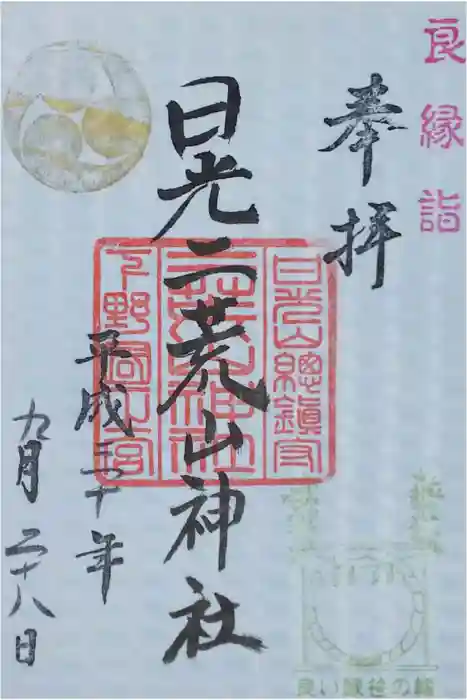 良縁詣
奉拝
日光二荒山神社
平成三十年
九月二十八日
日光山總鎮守
二荒山神社
下野國一宮
良い縁